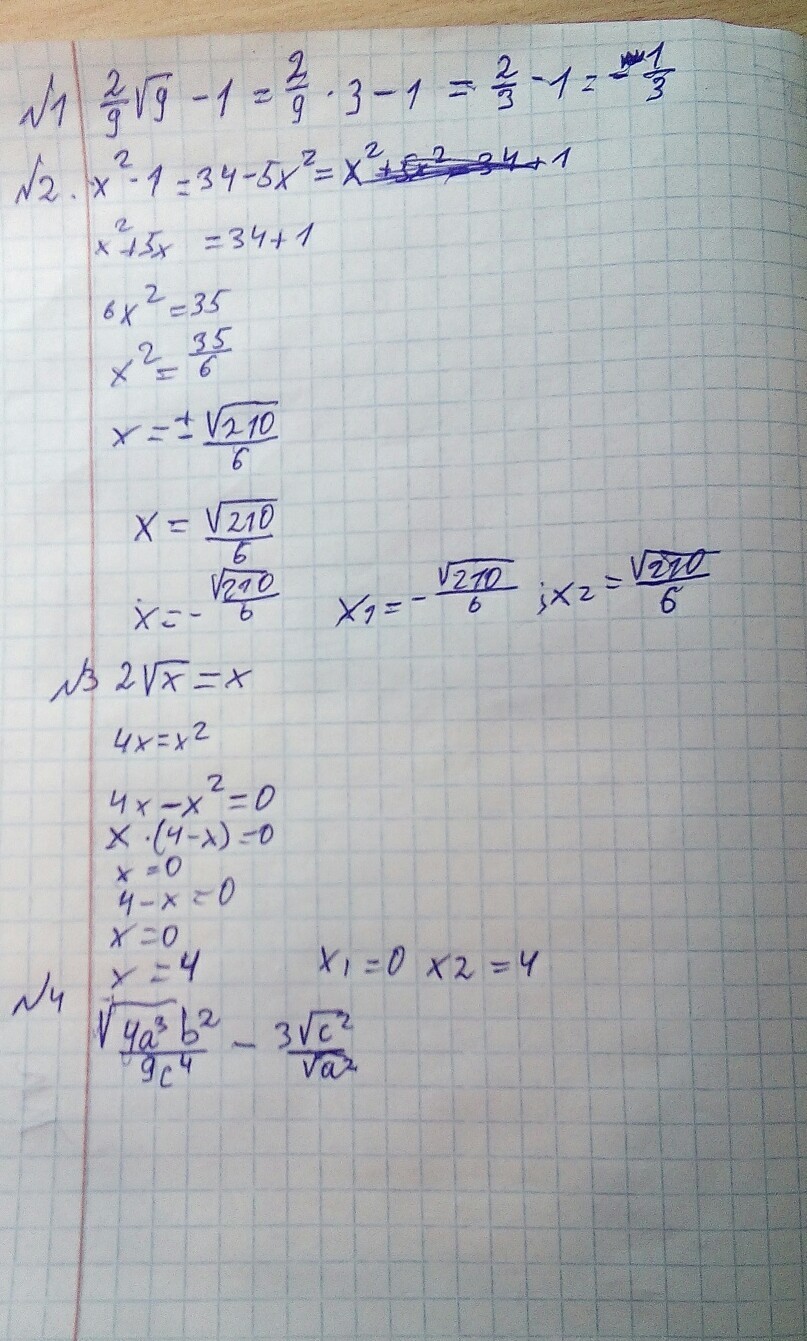 №1 2/9 √9 - 1 = 2/9 · 3 - 1 = 2/3 - 1 = - 1/3
№2. x² - 1 = 34 - 5x² = x² + 5x² - 34 + 1
x² + 5x = 34 + 1
6x² = 35
x² = 35/6
x = ± √210/6
x = √210/6
x = - √210/6 x₁ = - √210/6 ; x₂ = √210/6
№3 2√x = x
4x = x²
4x - x² = 0
x · (4 - x) = 0
x = 0
4 - x = 0
x = 0
x = 4 x₁ = 0 x2 = 4
№4
√(4a³b²/9c⁴) - 3√c²/√a²